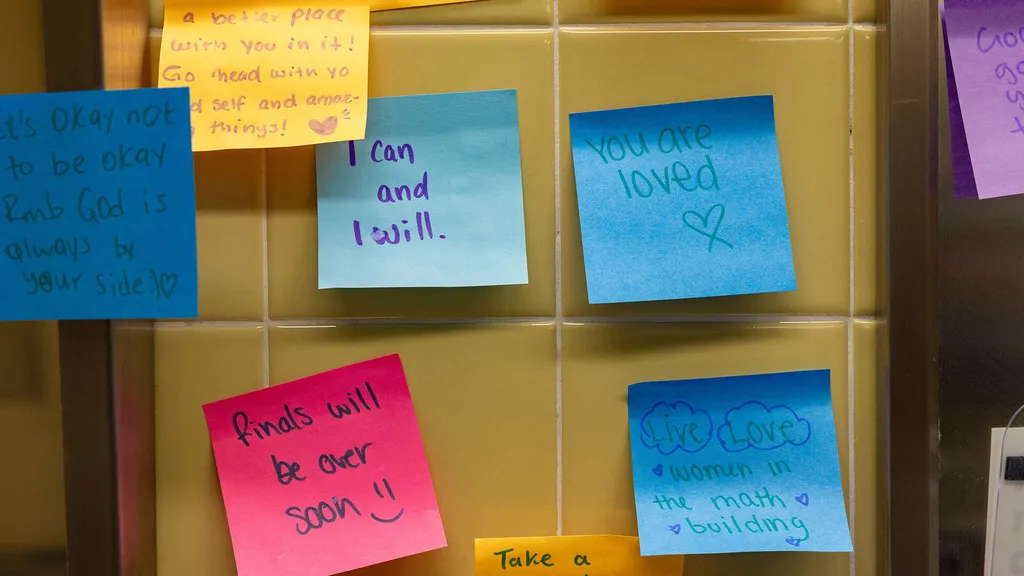 a better place
with you in it!
Go ahead with yo
self and amaz-
things!
It's okay not
to be okay
Rmb God is
always by
your side:)
I can
and
I will.
You are
loved
finals will
be over
soon
Live Love
women in
the math
building
Take a